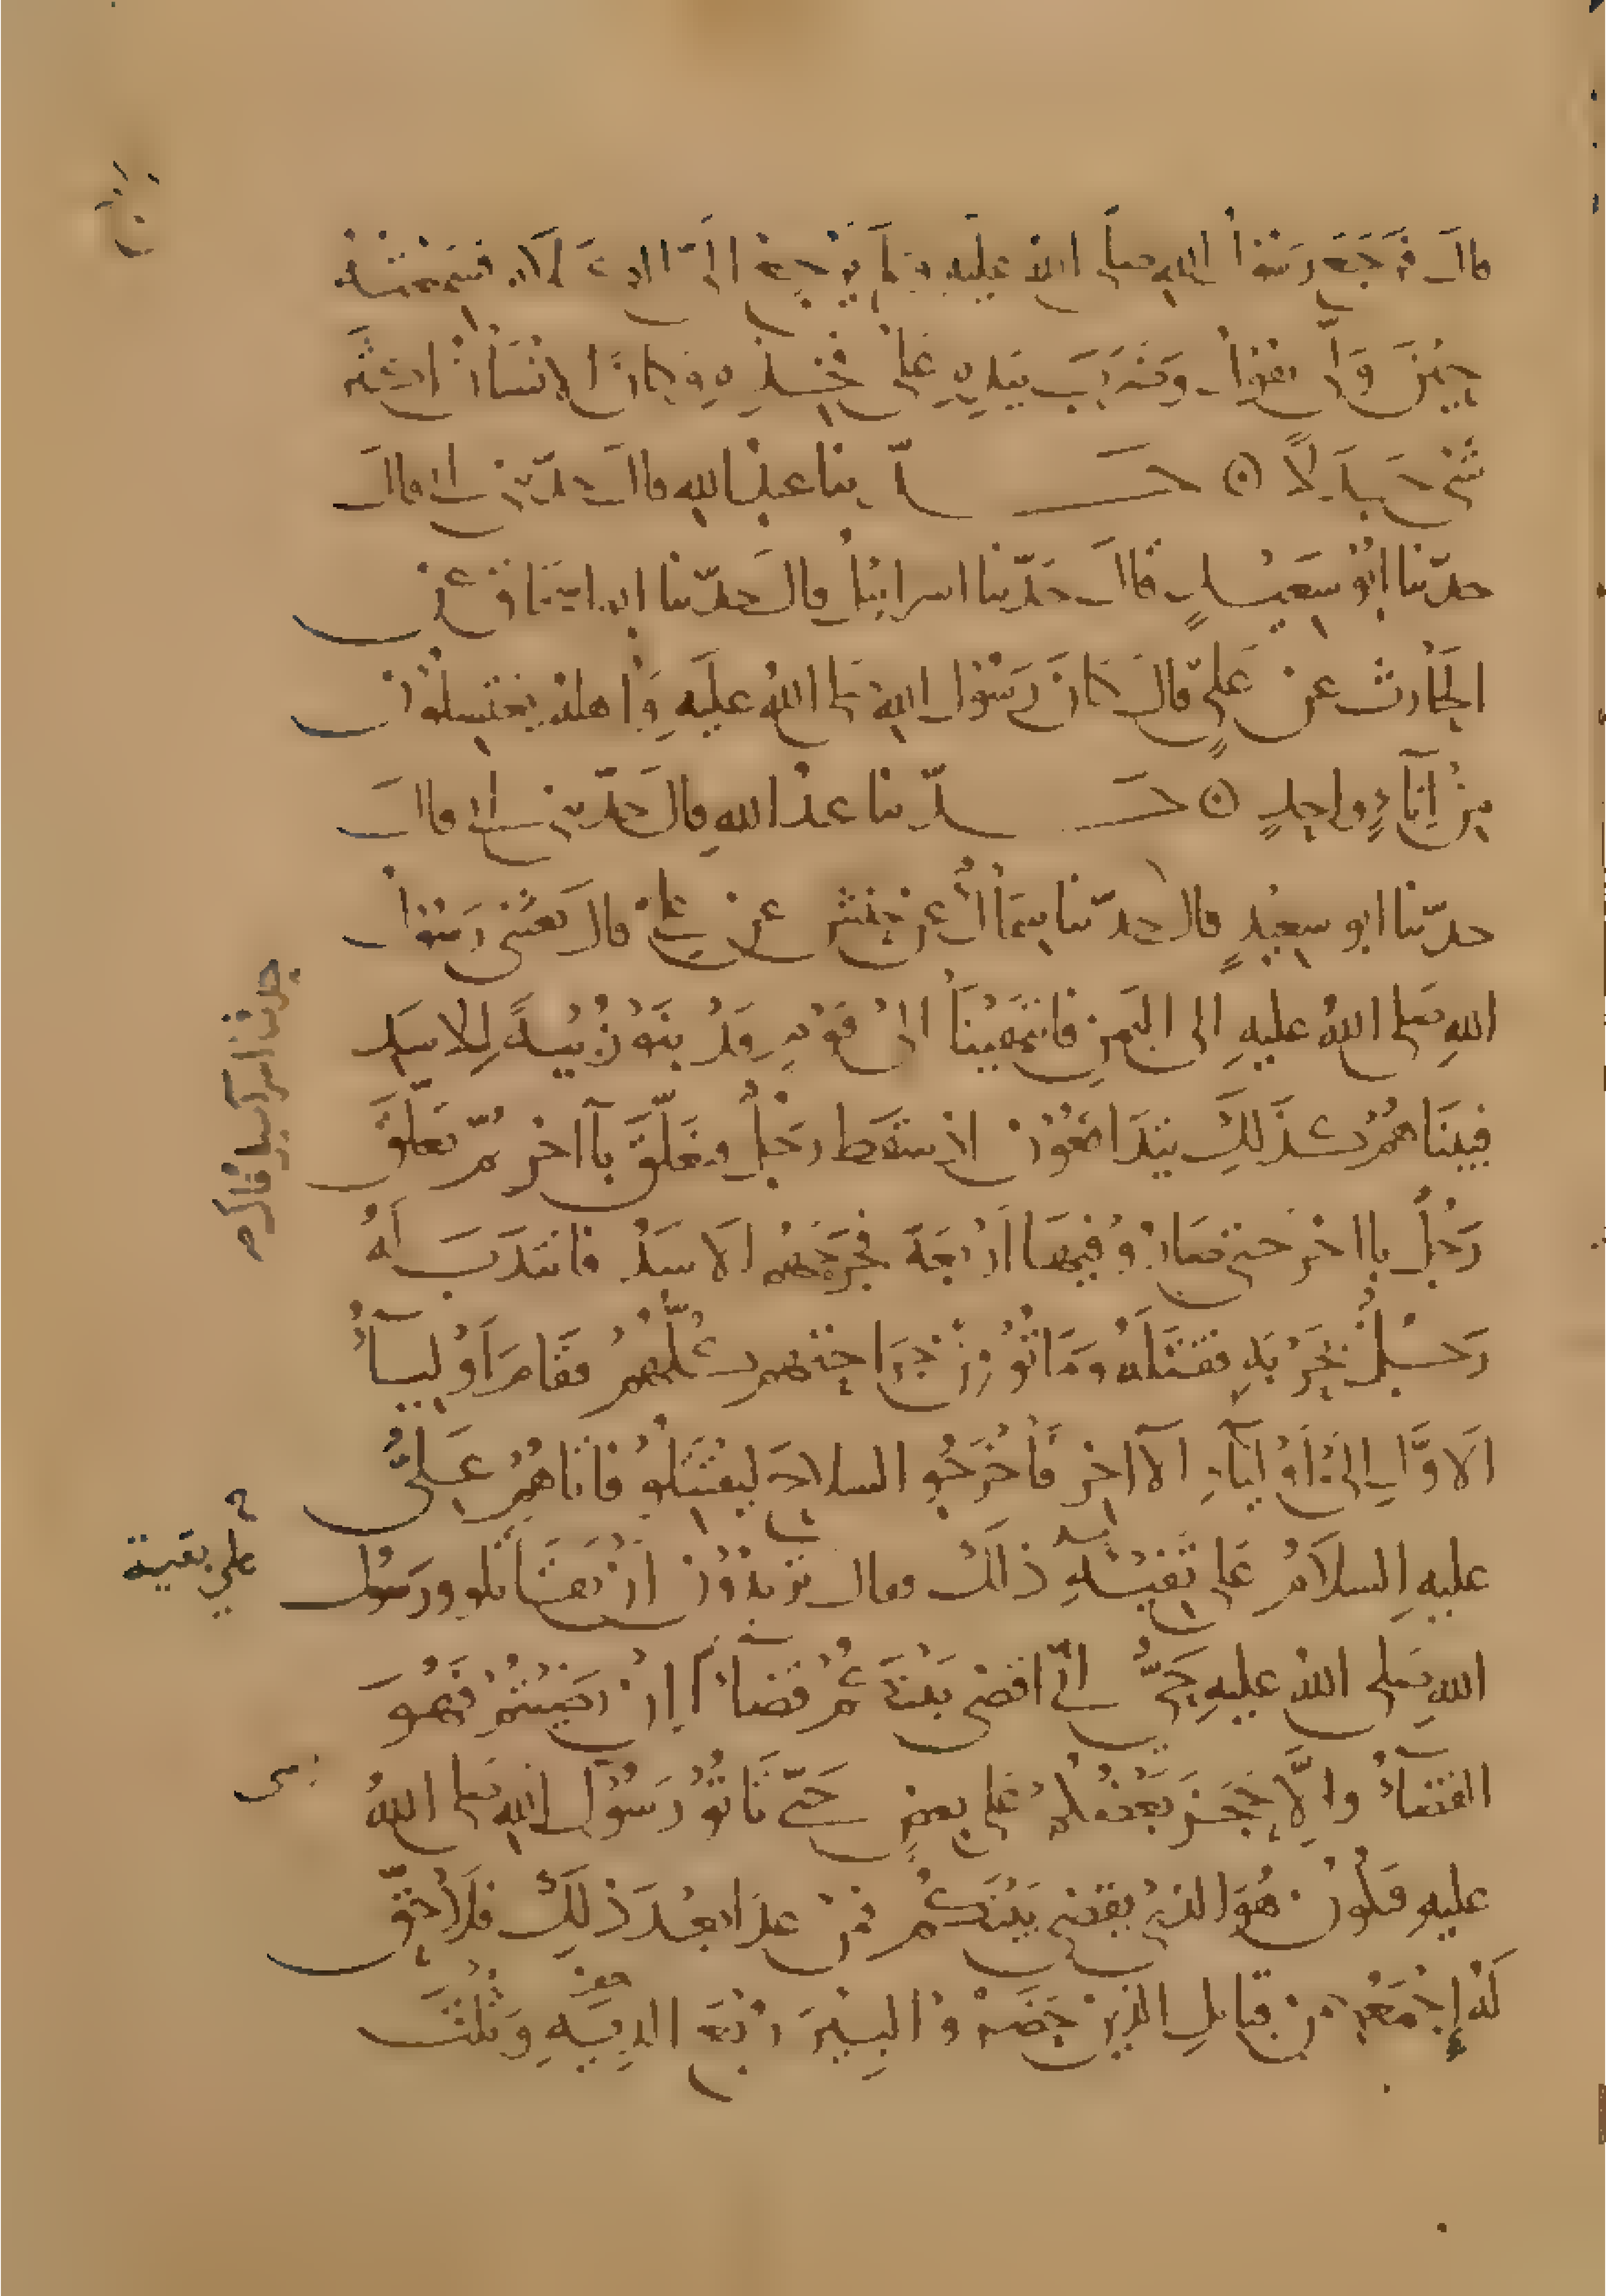 قال فرجع رسول الله صلى الله عليه ولم يرجع الي الكلام فسمعته
حين ولى يقول وضرب بيده على فخذه وكان الانسان اكثر
شئ جدلا ۞ حدثنا عبد الله قال حدثني ابي قال
حدثنا ابو سعيد قال حدثنا اسرائيل قال حدثنا ابو اسحاق عن
الحارث عن علي قال كان رسول الله صلى الله عليه واهله يغتسلون
من اناء واحد ۞ حدثنا عبد الله قال حدثني ابي قال
حدثنا ابو سعيد قال حدثنا سماك عن حنش عن علي قال بعثني رسول
الله صلى الله عليه الى اليمن فانتهينا الى قوم قد بنو زبية للاسد
فبينا هم كذلك يتدافعون اذ سقط رجل فتعلق بآاخر ثم تعلق
رجل بااخر حتى صارو فيها اربعة فجرحهم الاسد فانتدب له
رجل بحربة فقتله وماتو من جراحتهم كلهم فقام اولياء
الاول الى اولياء الآاخر فأخرجو السلاح ليقتتلو فاتاهم علي
عليه السلام على تفيئة ذلك فقال تريدون ان تقاتلو ورسول
الله صلى الله عليه حي اني اقضي بينكم قضاء ان رضيتم فهو
القضاء والا حجز بعضكم على بعض حتى تاتو رسول الله صلى الله
عليه فيكون هو الذي يقضي بينكم فمن عدا بعد ذلك فلا حق
له اجمعو من قبايل الذين حضرو البير ربع الدية وثلث
حدثنا اسرائيل قال
على بقية